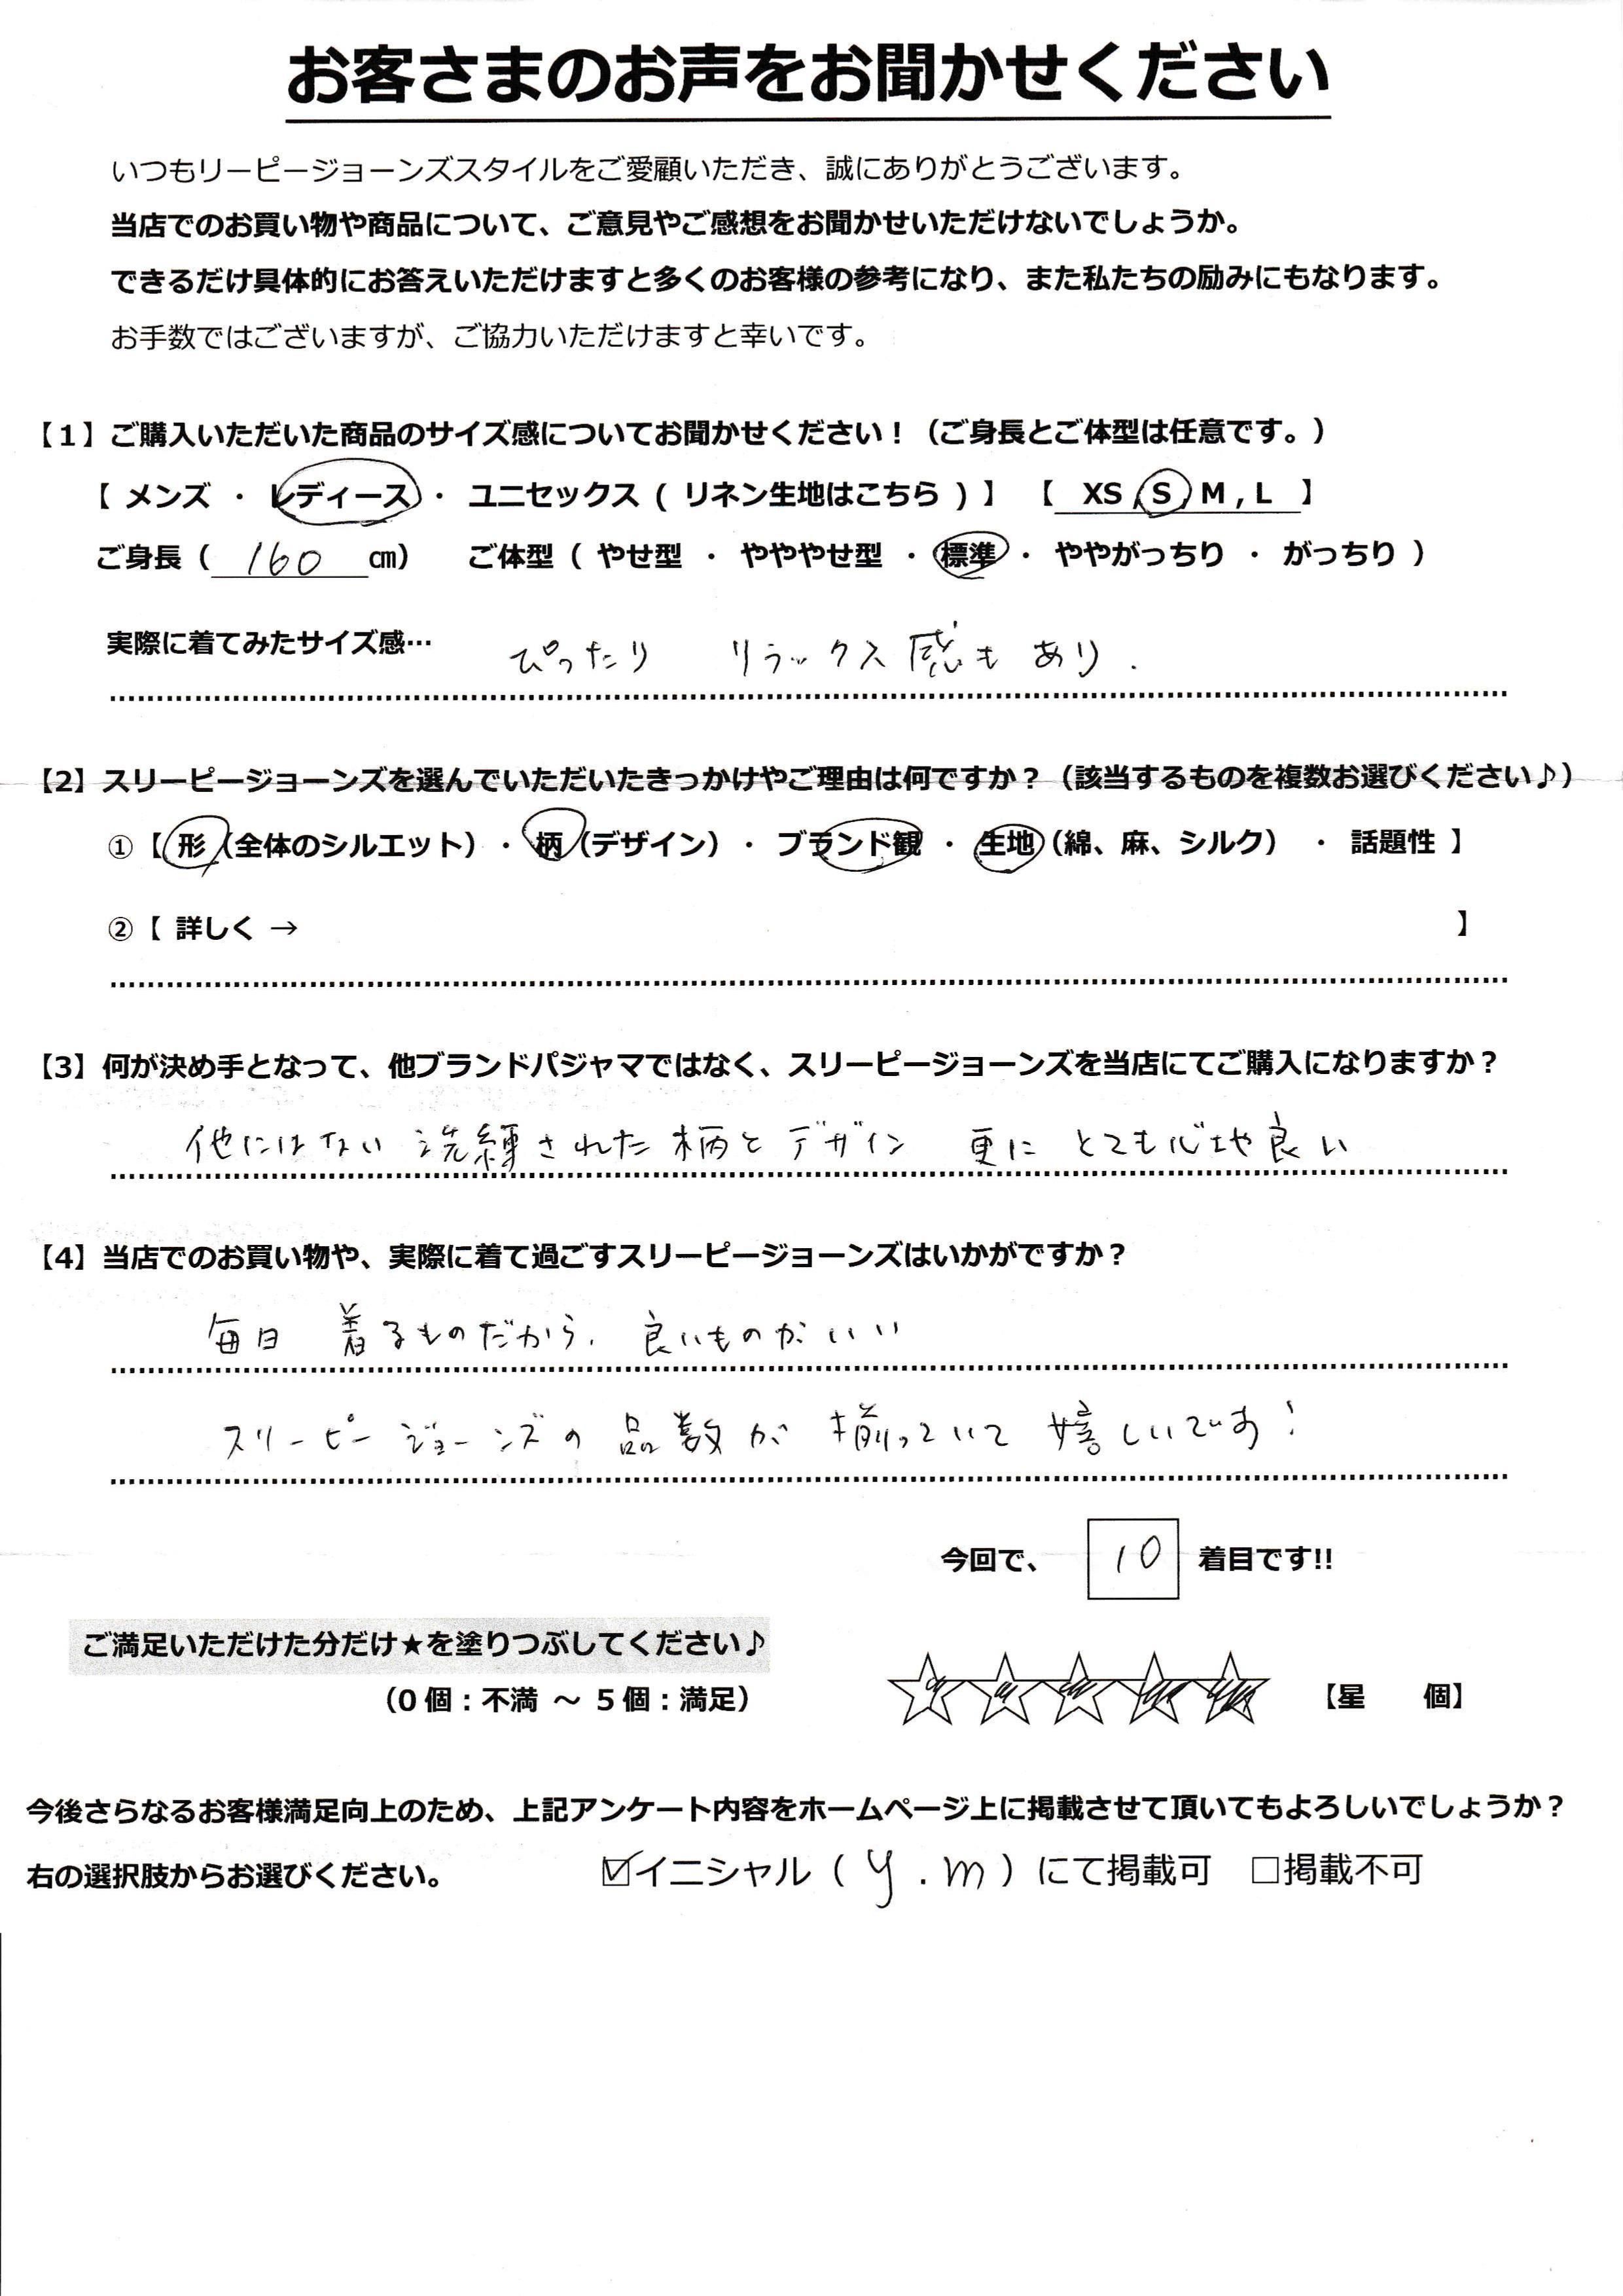 お客さまのお声をお聞かせください
いつもリーピージョーンズスタイルをご愛顧いただき、誠にありがとうございます。
当店でのお買い物や商品について、ご意見やご感想をお聞かせいただけないでしょうか。
できるだけ具体的にお答えいただけますと多くのお客様の参考になり、また私たちの励みにもなります。
お手数ではございますが、ご協力いただけますと幸いです。
【１】ご購入いただいた商品のサイズ感についてお聞かせください！（ご身長とご体型は任意です。）
【 メンズ ・ レディース ・ ユニセックス ( リネン生地はこちら ) 】 【 XS , S , M , L 】
ご身長（ 160 ㎝） ご体型（ やせ型 ・ やややせ型 ・ 標準 ・ ややがっちり ・ がっちり ）
実際に着てみたサイズ感… ぴったり リラックス感もあり.
【2】スリーピージョーンズを選んでいただいたきっかけやご理由は何ですか？（該当するものを複数お選びください♪）
①【 形（全体のシルエット）・ 柄（デザイン）・ ブランド観 ・ 生地（綿、麻、シルク） ・ 話題性 】
②【 詳しく → 】
【3】何が決め手となって、他ブランドパジャマではなく、スリーピージョーンズを当店にてご購入になりますか？
他にはない 洗練された柄とデザイン 更に とても心地良い
【4】当店でのお買い物や、実際に着て過ごすスリーピージョーンズはいかがですか？
毎日 着るものだから、良いものがいい
スリーピージョーンズの品数が 揃っていて 嬉しいです！
今回で、 10 着目です!!
ご満足いただけた分だけ★を塗りつぶしてください♪
（0 個：不満 ～ 5 個：満足） ☆☆☆☆☆ 【星 個】
今後さらなるお客様満足向上のため、上記アンケート内容をホームページ上に掲載させて頂いてもよろしいでしょうか？
右の選択肢からお選びください。 ☑イニシャル（ y . m ）にて掲載可 □掲載不可